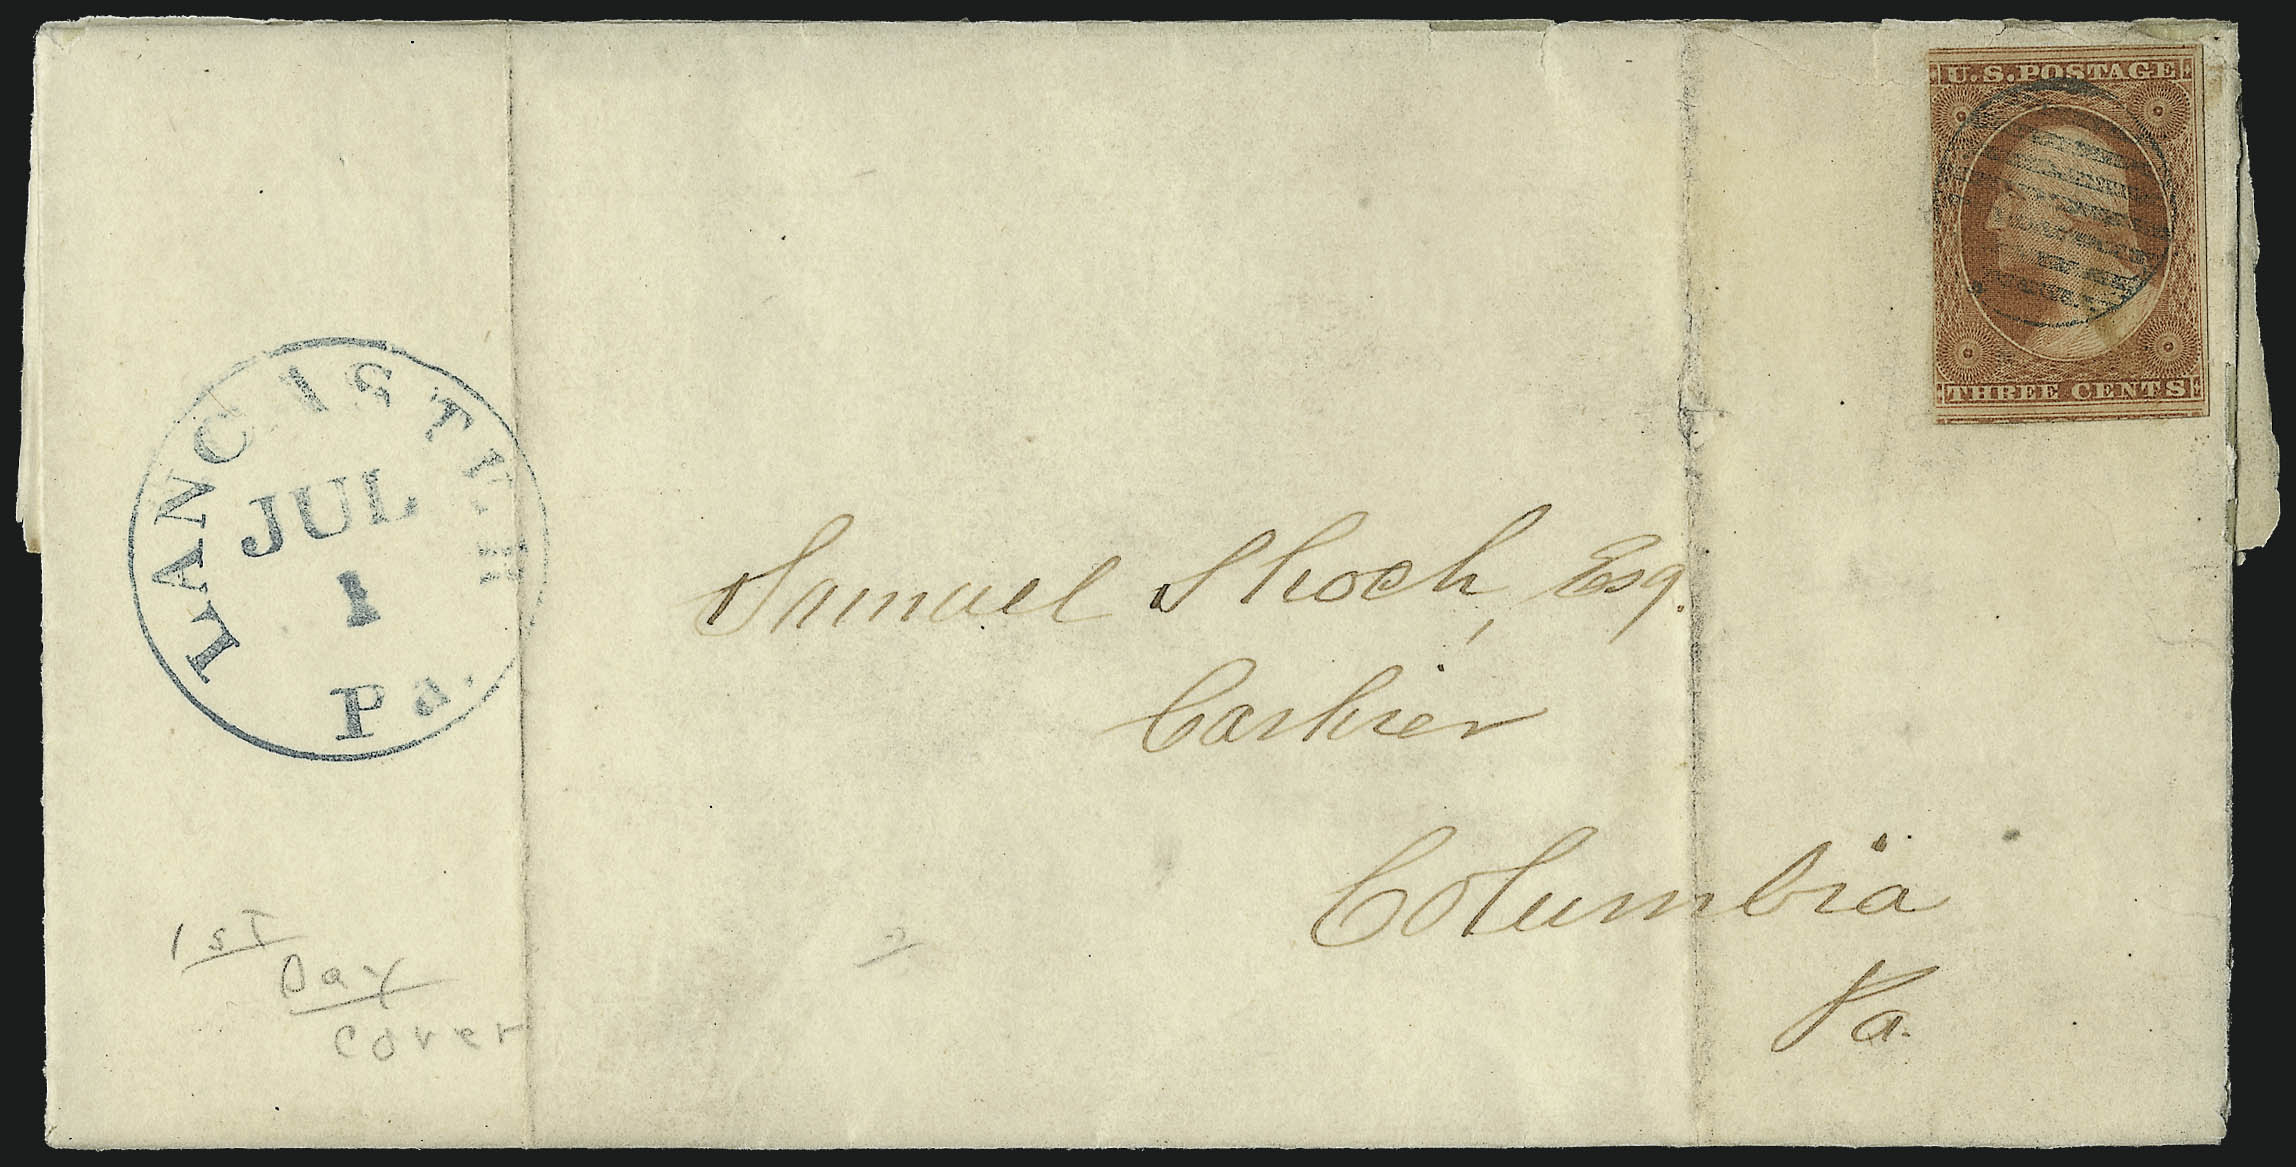 U.S. POSTAGE
THREE CENTS
LANCASTER
JUL
1
Pa.
Samuel Shoch, Esq.
Cashier
Columbia
Pa.
1st
Day
cover